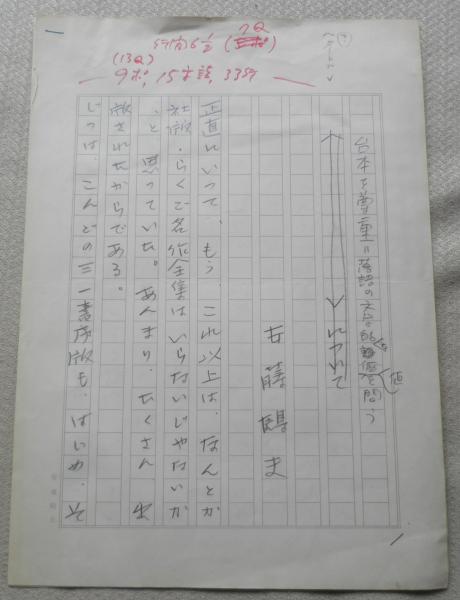 行間6½ (7Q
(13Q)
9ポ, 15字詰, 33行
台本を尊重 落語の文学的価値を問う
値
安藤鶴夫
正直にいって、もう、これ以上は、なんとか
社版・らくご名作全集はいらないじゃないか
、と、思っていた。あんまり、たくさん、出
版されたからである。
じつは、こんどの三一書房版も、はじめ、そ